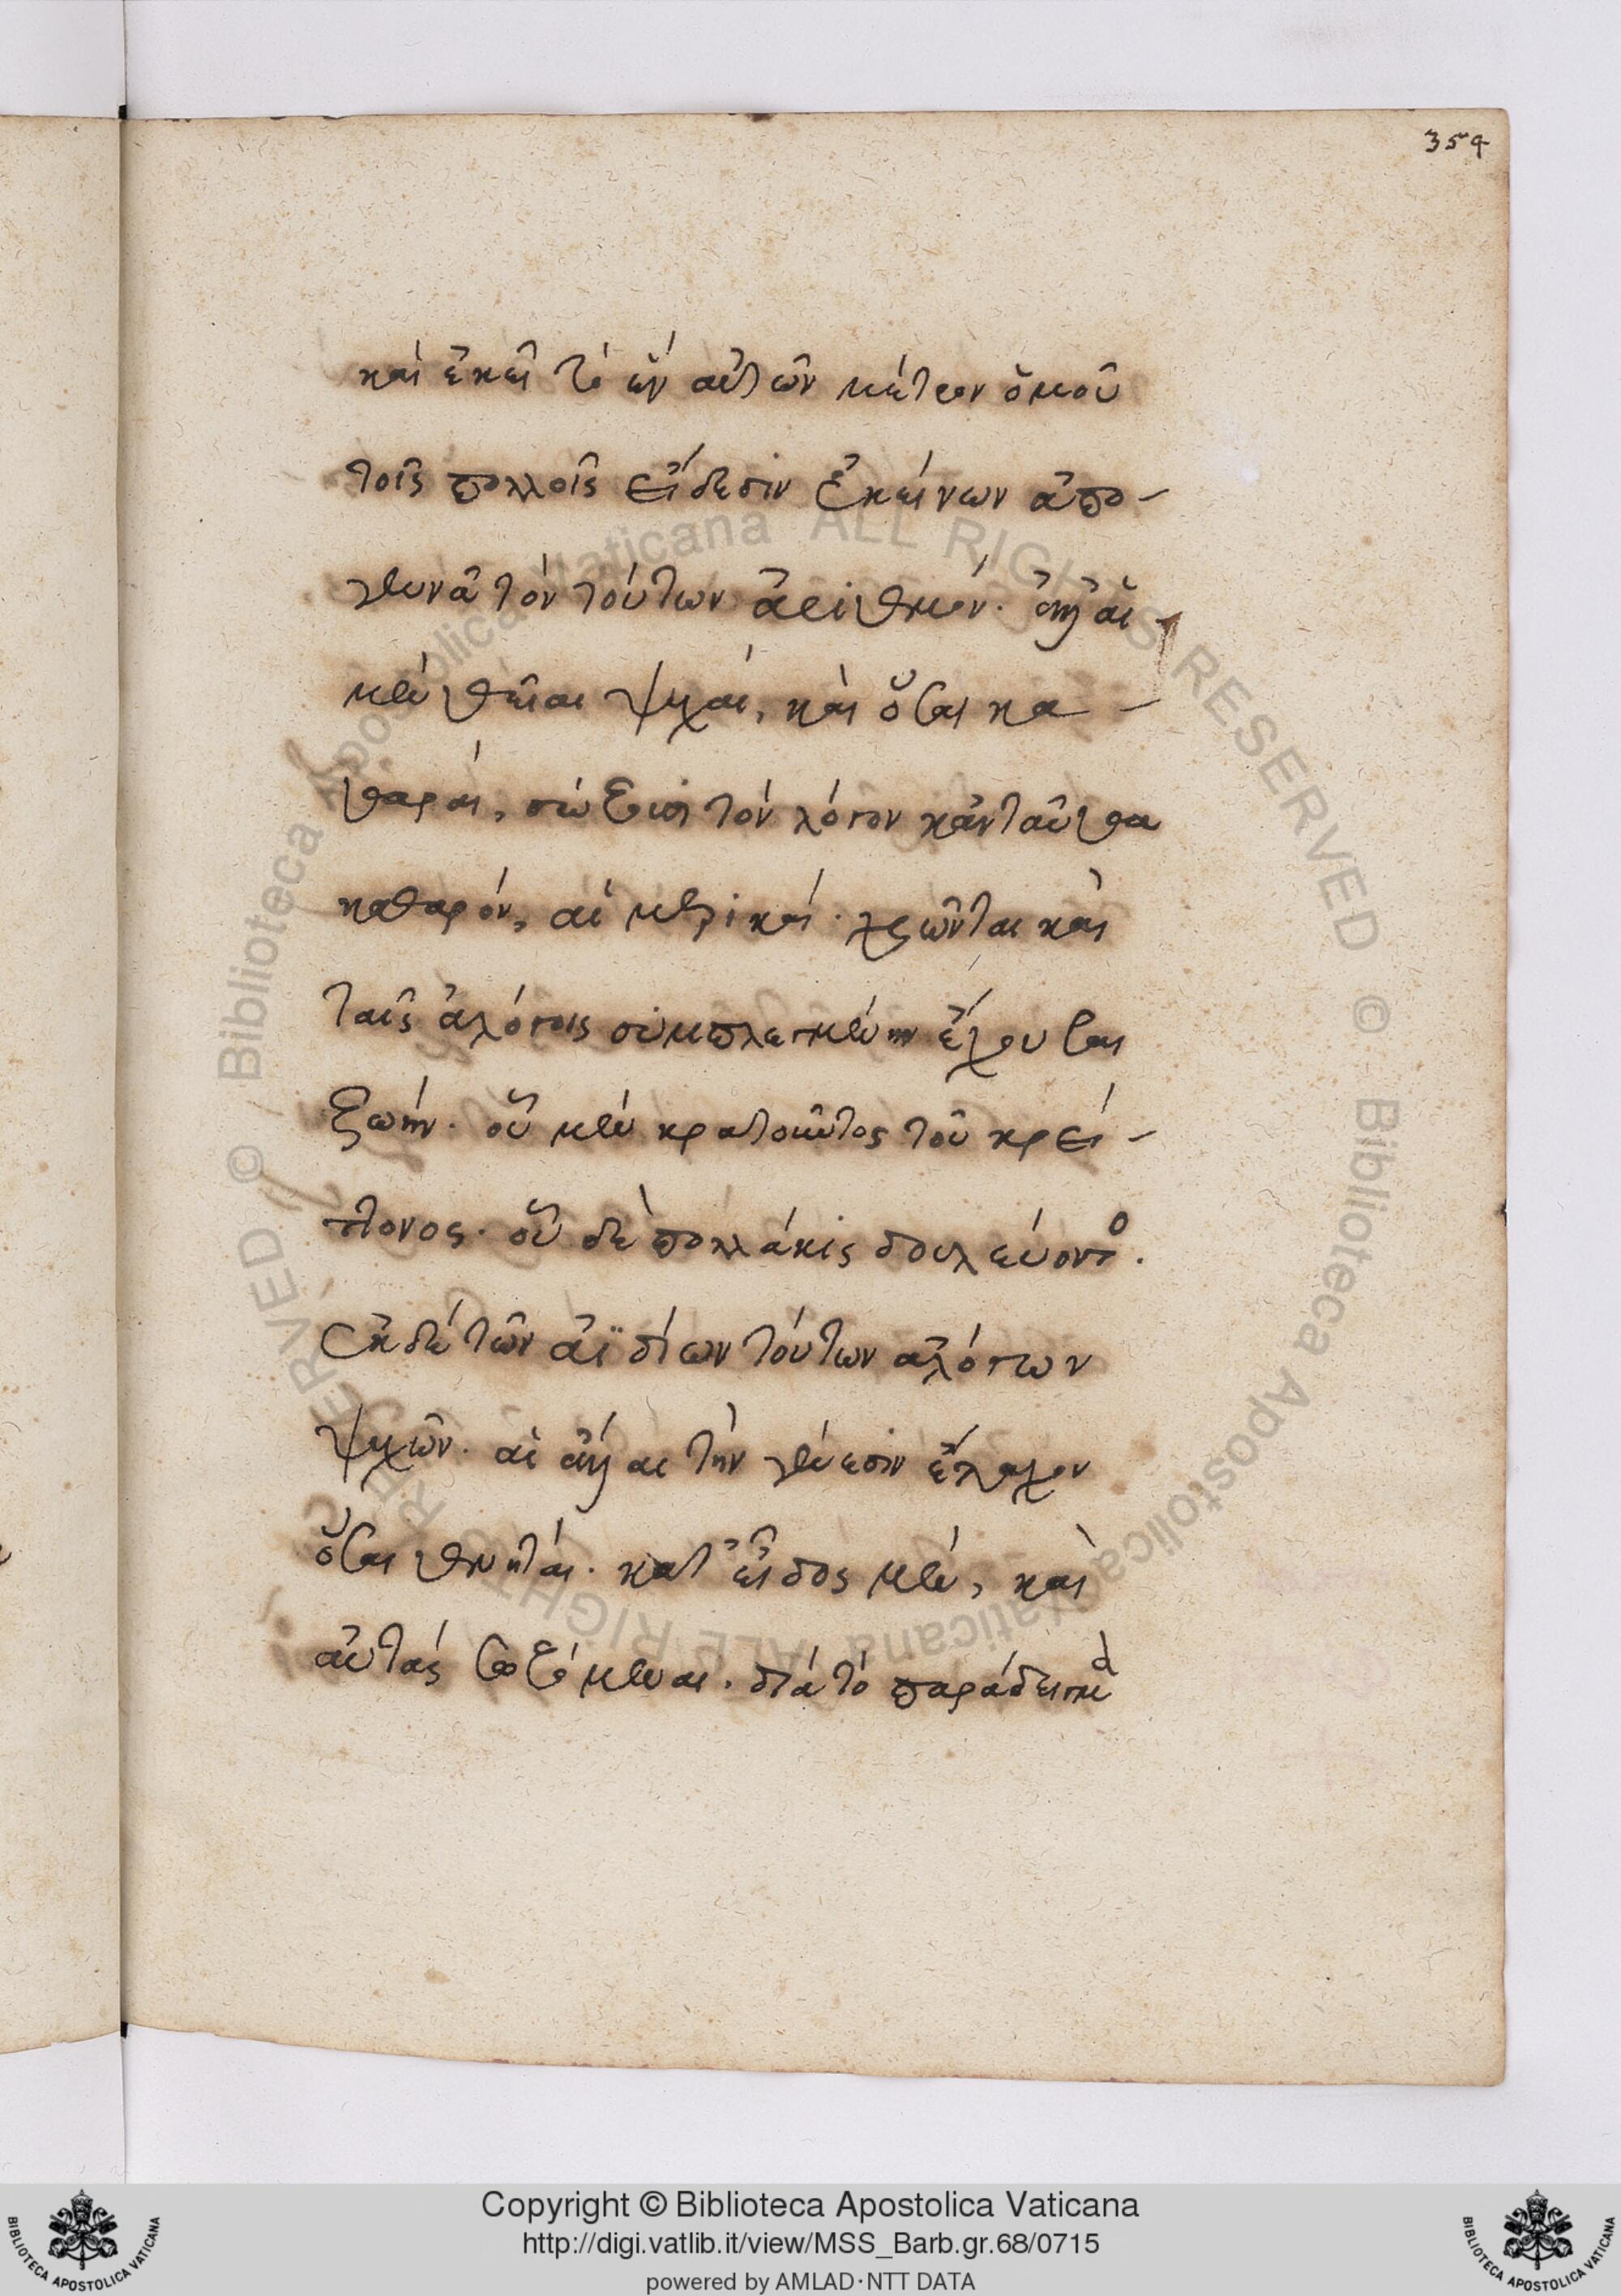 354
καὶ ἐκεῖ τὸ ἓν αὐτῶν μέτρον ὁμοῦ
τοῖς πολλοῖς εἴδεσιν ἐκείνων ἀπο-
γεννᾶ τὸν τούτων ἀριθμόν. αἱ
μὲν θεῖαι ψυχαί, καὶ ὅσαι κα-
θαραί, σώζουσι τὸν λόγον κἀνταῦθα
καθαρόν, αἱ μερικαί. χρῶνται καὶ
ταῖς ἀλόγοις συμπλεκομένην ἔχουσαι
ζωήν. οὗ μὲν κρατοῦντος τοῦ κρεί-
ττονος. οὗ δὲ πολλάκις δουλεύοντο.
ἐκ δὲ τῶν ἀϊδίων τούτων ἀλόγων
ψυχῶν. αἱ τὴν γένεσιν ἔλαχον
ὅσαι θνηταί. κατ' εἶδος μέν, καὶ
αὐτὰς σωζόμεναι. διὰ τὸ παράδειγμα
Copyright © Biblioteca Apostolica Vaticana
http://digi.vatlib.it/view/MSS_Barb.gr.68/0715
powered by AMLAD·NTT DATA
BIBLIOTECA APOSTOLICA VATICANA
BIBLIOTECA APOSTOLICA VATICANA
© Biblioteca Apostolica Vaticana ALL RIGHTS RESERVED
© Biblioteca Apostolica Vaticana ALL RIGHTS RESERVED